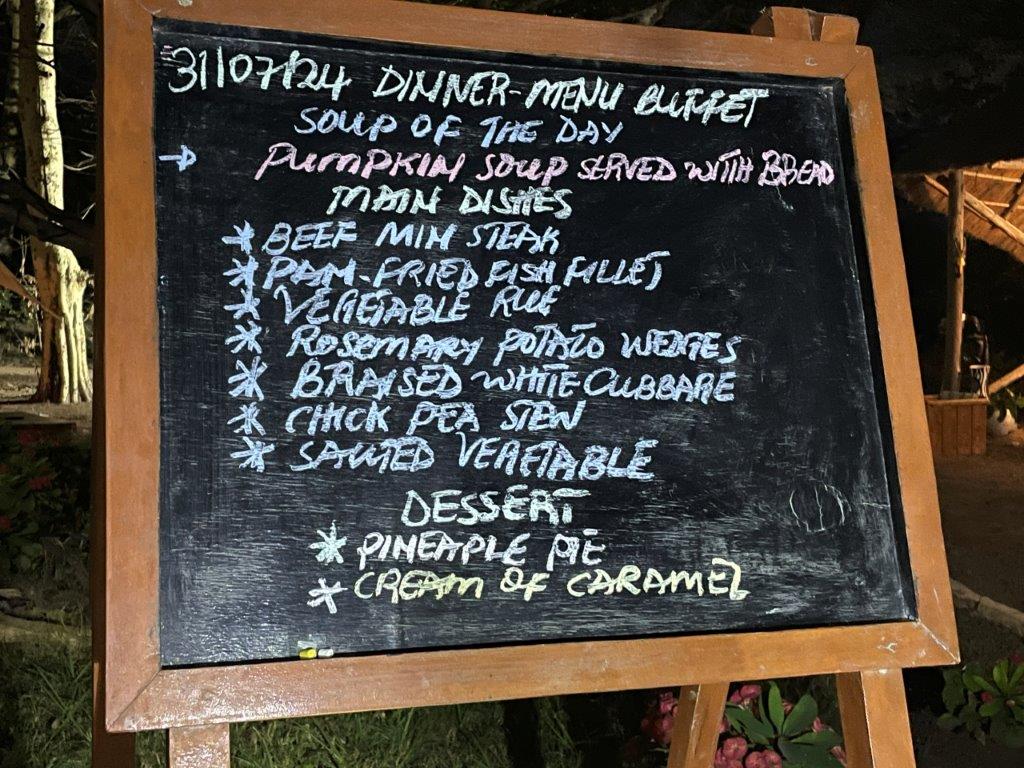 31/07/24 DINNER-MENU BUFFET
SOUP OF THE DAY
→ PUMPKIN SOUP SERVED WITH BREAD
MAIN DISHES
* BEEF MIN STEAK
* PAM-FRIED FISH FILLET
* VEGETABLE RICE
* ROSEMARY POTATO WEDGES
* BRAISED WHITE CUBBARE
* CHICK PEA STEW
* SAUTED VEGETABLE
DESSERT
* PINEAPLE PIE
* CREAM OF CARAMEL